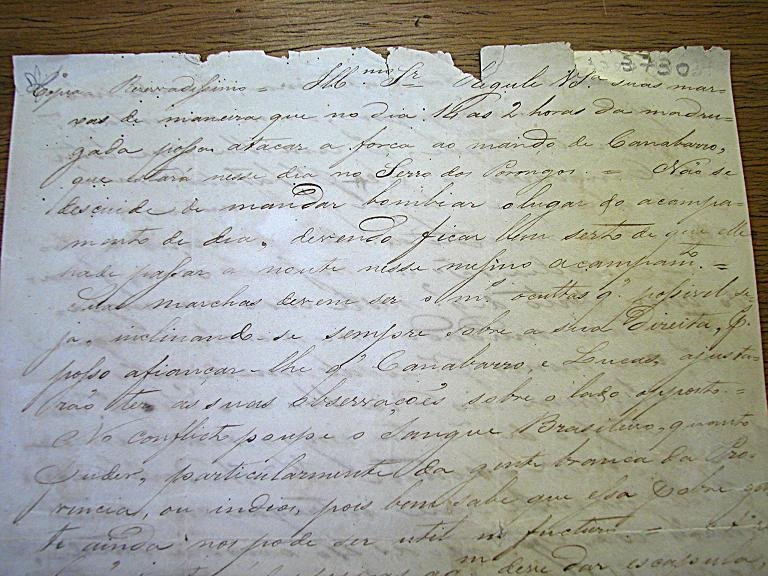 3730
Copia Reservadissimo = Illmo Sr. Regule V. Sa. suas mar-
xas de maneira que no dia 14 as 2 horas da madru-
gada possa atacar a força ao mando de Canabarro,
que estará nesse dia no Serro dos Porongos. = Não se
descuide de mandar bombiar o lugar do acampa-
mento de dia, devendo ficar bem serto de que elle
hade passar a noute nesse mesmo acampamto. =
Suas marchas devem ser o mo. occultas qe. possivel se-
ja, inclinando-se sempre sobre a sua Direita, p
posso afiançar-lhe qe. Canabarro, e Lucas, ajusta-
rão ter as suas observações sobre o lado opposto. =
No conflicto poupe o sangue Brasileiro, quanto
puder, particularmente da gente branca da Pro-
vincia, ou indios, pois bem sabe que essa pobre gen
te ainda nos pode ser util no fucturo. =
deve dar escapula,